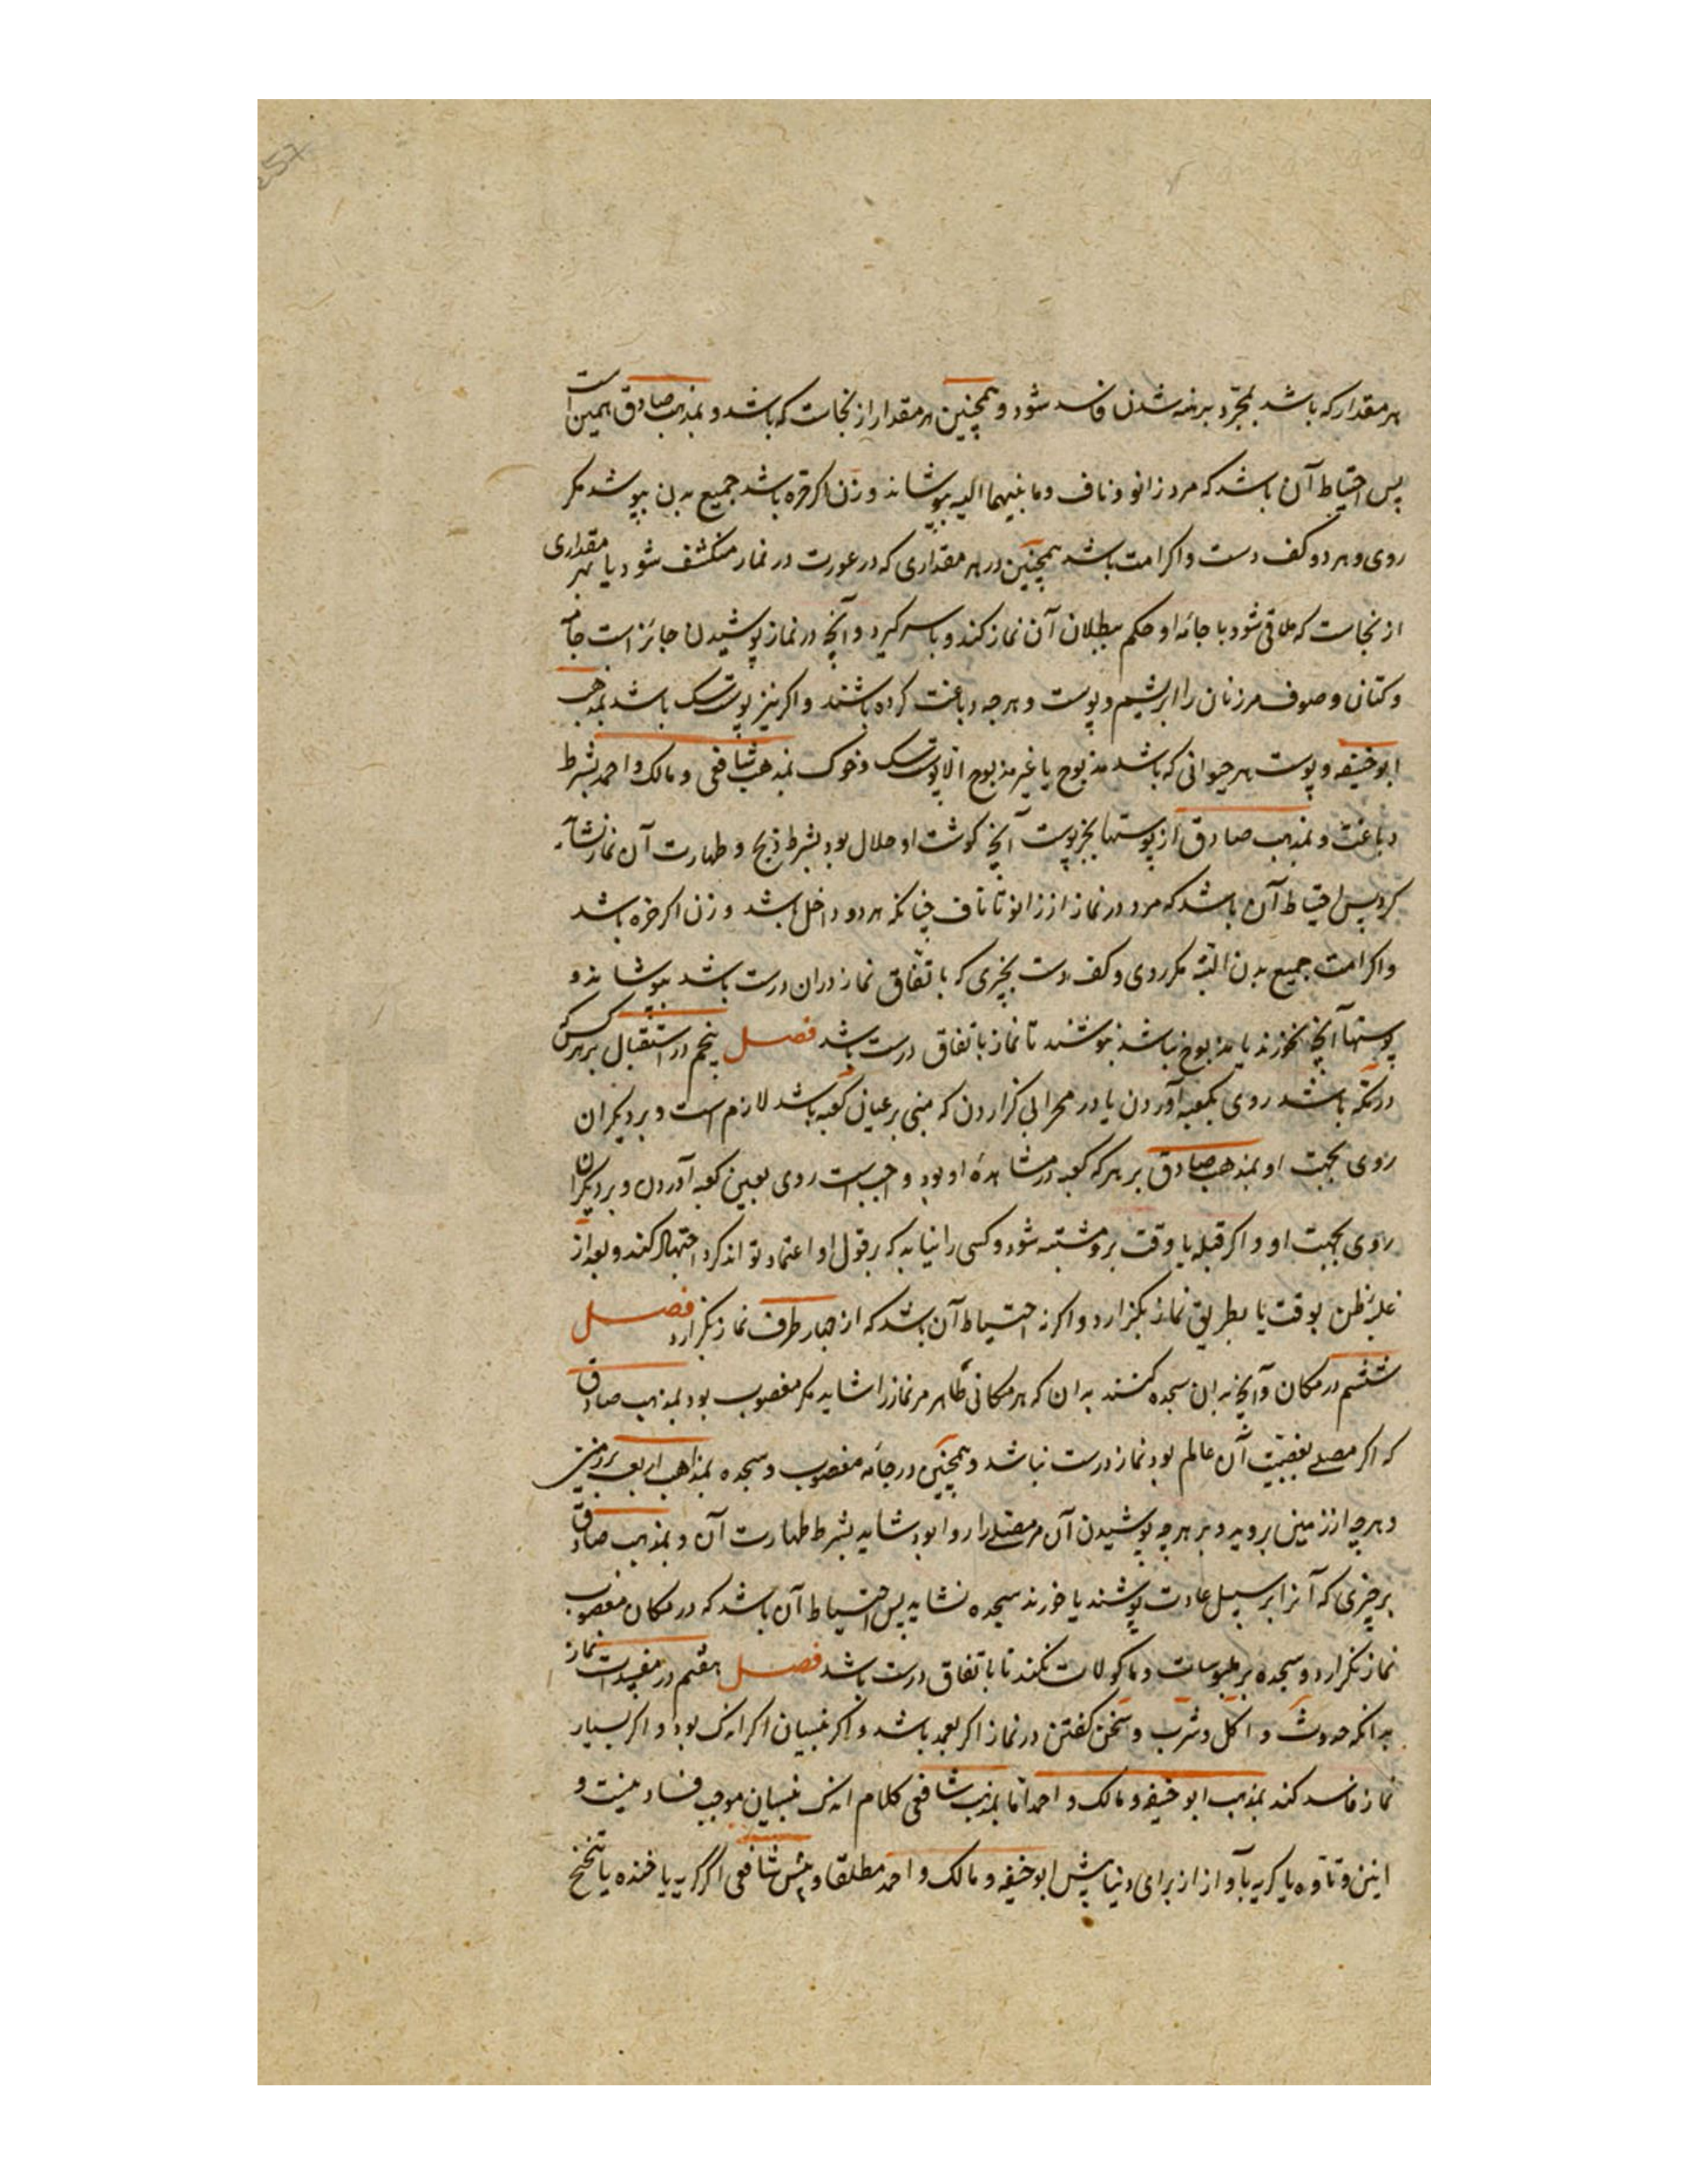 هر مقدار که باشد بمجرد برهنه شدن فاسد شود و همچنین هر مقدار از نجاست که باشد و بمذهب صادق همین است
پس احتیاط آن باشد که مرد زانو و ناف و ما بینهما البته بپوشاند و زن اگر حره باشد جمیع بدن بپوشد مکر
روی و هر دو کف دست و اکر امت باشد همچنین در هر مقداری که در عورت در نماز منکشف شود یا بهر مقداری
از نجاست که ملاقی شود با جامه او حکم ببطلان آن نماز کند و باسر کیرد و آنچه در نماز پوشیدن جائز است جامه
و کتان و صوف مر زنان را ابریشم و پوست و هرچه دباغت کرده باشند و اکر نیز پوست سک باشد بمذهب
ابو حنیفه و پوست هر حیوانی که باشد مذبوح یا غیر مذبوح الا پوست سک و خوک بمذهب شافعی و مالک و احمد بشرط
دباغت و بمذهب صادق از پوستها بجز پوست آنچه کوشت او حلال بود بشرط ذبح و طهارت آن نماز نشاید
کرد پس احتیاط آن باشد که مرد در نماز از زانو تا ناف چنانکه هر دو داخل باشد و زن اکر حره باشد
و اکر امت جمیع بدن البته مکر روی و کف دست بچیزی که باتفاق نماز در ان درست باشد بپوشاند و
پوستها آنچه نخورند یا مذبوح نباشد نپوشند تا نماز باتفاق درست باشد فصل پنجم در استقبال بر هر کس که
در مکه باشد روی بکعبه آوردن یا در محرابی کزاردن که مبنی بر عیان کعبه باشد لازم است و بر دیکران
روی بجهت او بمذهب صادق بر هر که کعبه در مشاهده او بود واجب است روی بعین کعبه آوردن و بر دیکران
روی بجهت او و اکر قبله یا وقت برو مشتبه شود و کسی را نیابد که بر قول او اعتماد تواند کرد اجتهاد کند و بعد از
غلبه ظن بوقت یا بطریق نماز بکزارد و اکر نه احتیاط آن باشد که از چهار طرف نماز بکزارد فصل
ششم در مکان و آنچه بدان سجده کنند بدان که هر مکانی طاهر مر نماز را شاید مکر مغصوب بود بمذهب صادق
که اکر مصلی بغصبیت آن عالم بود نماز درست نباشد و همچنین در جامه مغصوب و سجده بمذاهب اربعه بر زمین
و هرچه از زمین بروید و بر هرچه پوشیدن آن مر مصلی را روا بود شاید بشرط طهارت آن و بمذهب صادق
بر چیزی که آنرا بر سبیل عادت پوشند یا خورند سجده نشاید پس احتیاط آن باشد که در مکان مغصوب
نماز نکزارد و سجده بر ملبوسات و ماکولات نکند تا باتفاق درست باشد فصل هفتم در مفسدات نماز
بدانکه حدوث و اکل و شرب و سخن کفتن در نماز اکر بعمد باشد و اکر بنسیان اکر اندک بود و اکر بسیار
نماز فاسد کند بمذهب ابو حنیفه و مالک و احمد اما بمذهب شافعی کلام اندک بنسیان موجب فساد نیست و
انین و تاوه یا کریه بآواز از برای دنیا پیش ابو حنیفه و مالک و احمد مطلقا و پیش شافعی اکر کریه یا خنده یا تنحنح